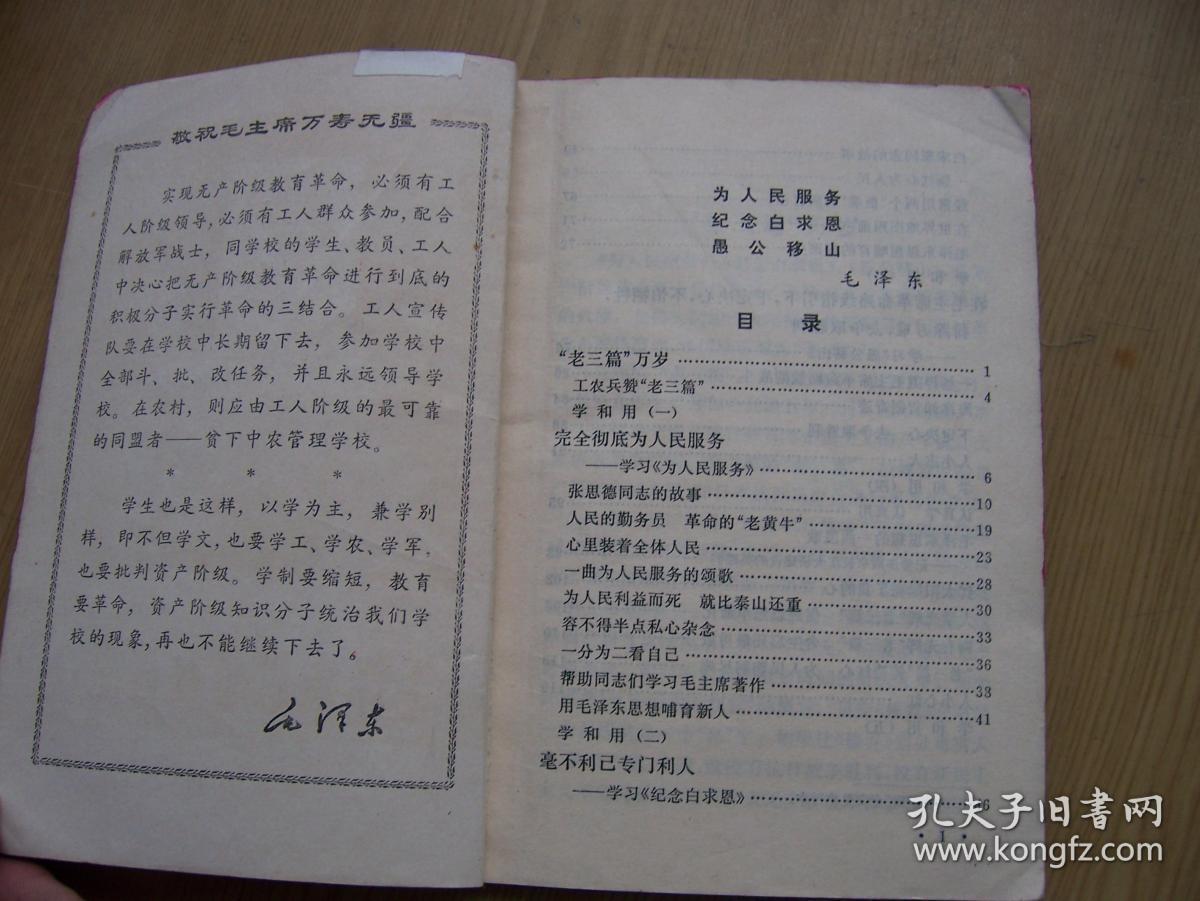 敬祝毛主席万寿无疆
实现无产阶级教育革命，必须有工
人阶级领导，必须有工人群众参加，配合
解放军战士，同学校的学生、教员、工人
中决心把无产阶级教育革命进行到底的
积极分子实行革命的三结合。工人宣传
队要在学校中长期留下去，参加学校中
全部斗、批、改任务，并且永远领导学
校。在农村，则应由工人阶级的最可靠
的同盟者——贫下中农管理学校。
* * *
学生也是这样，以学为主，兼学别
样，即不但学文，也要学工、学农、学军，
也要批判资产阶级。学制要缩短，教育
要革命，资产阶级知识分子统治我们学
校的现象，再也不能继续下去了。
毛泽东
为人民服务
纪念白求恩
愚公移山
毛泽东
目录
“老三篇”万岁……1
工农兵赞“老三篇”……4
学和用（一）
完全彻底为人民服务
——学习《为人民服务》……6
张思德同志的故事……10
人民的勤务员 革命的“老黄牛”……19
心里装着全体人民……23
一曲为人民服务的颂歌……28
为人民利益而死 就比泰山还重……30
容不得半点私心杂念……33
一分为二看自己……36
帮助同志们学习毛主席著作……38
用毛泽东思想哺育新人……41
学和用（二）
毫不利己专门利人
——学习《纪念白求恩》……
· 1 ·
孔夫子旧书网
www.kongfz.com